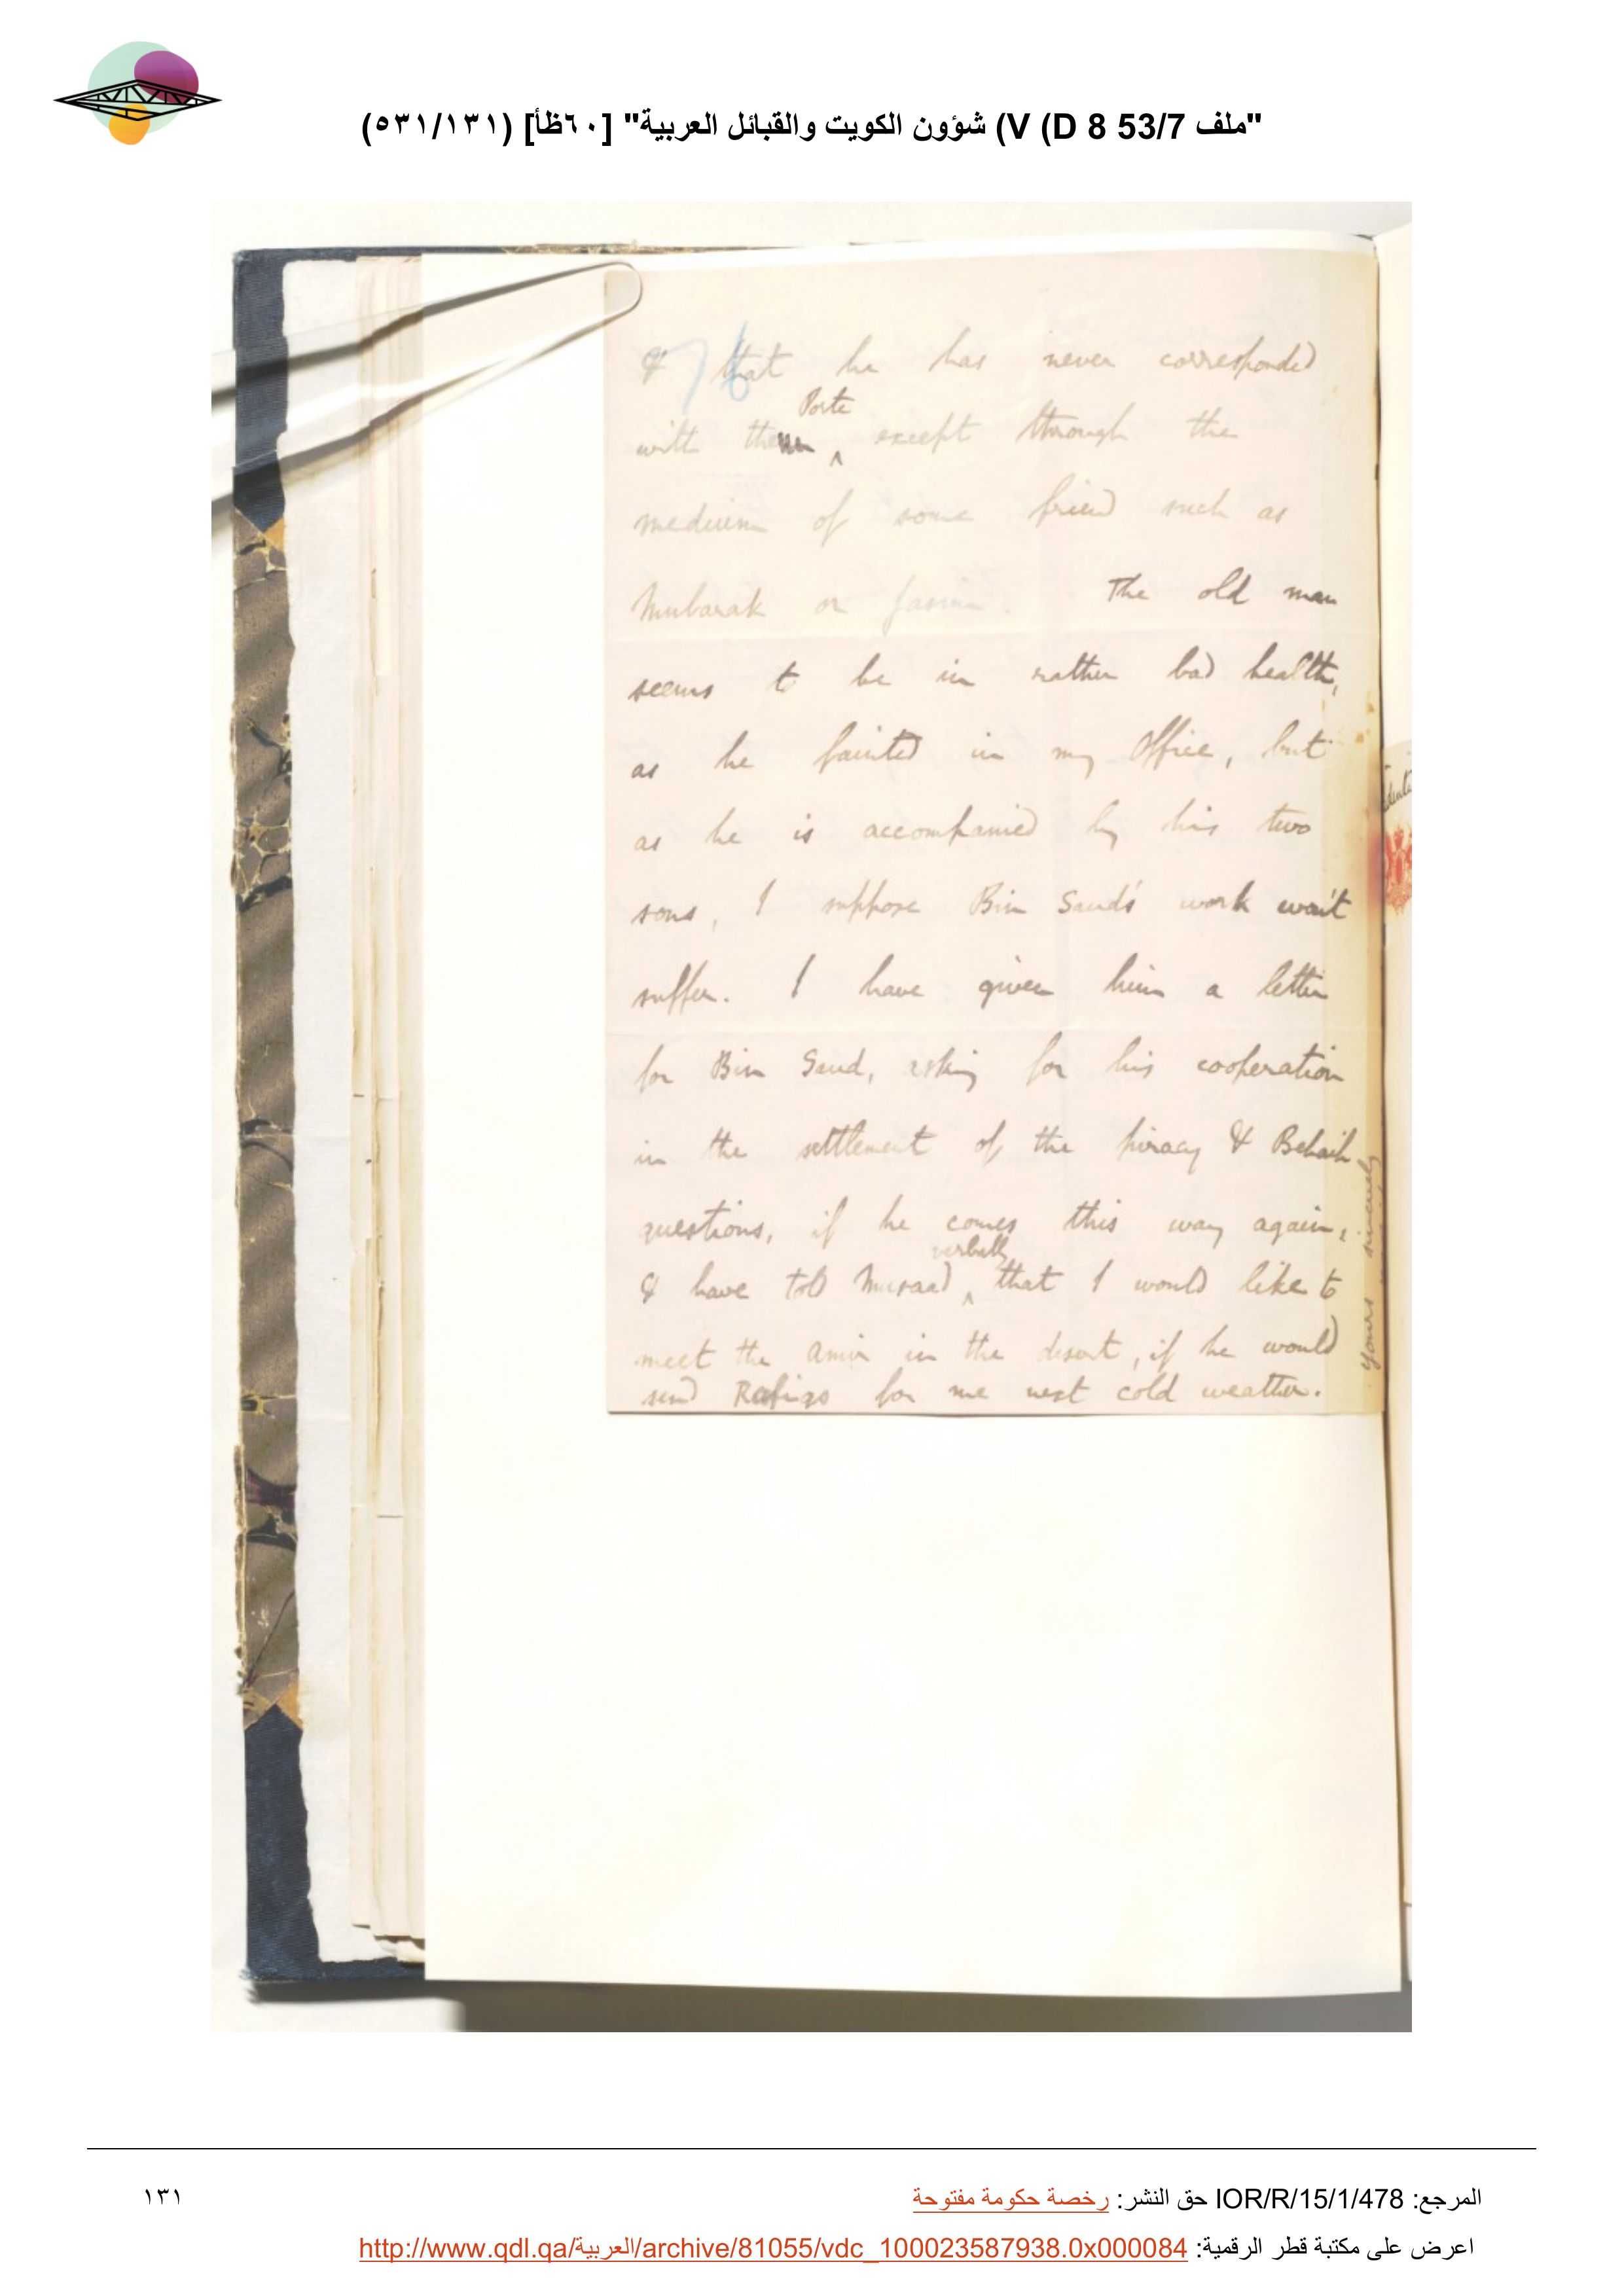 "ملف 53/7 V (D 8) شؤون الكويت والقبائل العربية" [٦٠ظأ] (٥٣١/١٣١)
76
& that he has never corresponded
Porte
with the except through the
medium of some friend such as
Mubarak or Jasim. The old man
seems to be in rather bad health,
as he fainted in my Office, but
as he is accompanied by his two
sons, I suppose Bin Saud's work won't
suffer. I have given him a letter
for Bin Saud, asking for his cooperation
in the settlement of the piracy &
questions, if he comes this way again,
verbally
& have told Musaad that I would like to
meet the Amir in the desert, if he would
send Rafiqs for me next cold weather.
yours sincerely
المرجع: IOR/R/15/1/478 حق النشر: رخصة حكومة مفتوحة
١٣١
اعرض على مكتبة قطر الرقمية: http://www.qdl.qa/العربية/archive/81055/vdc_100023587938.0x000084